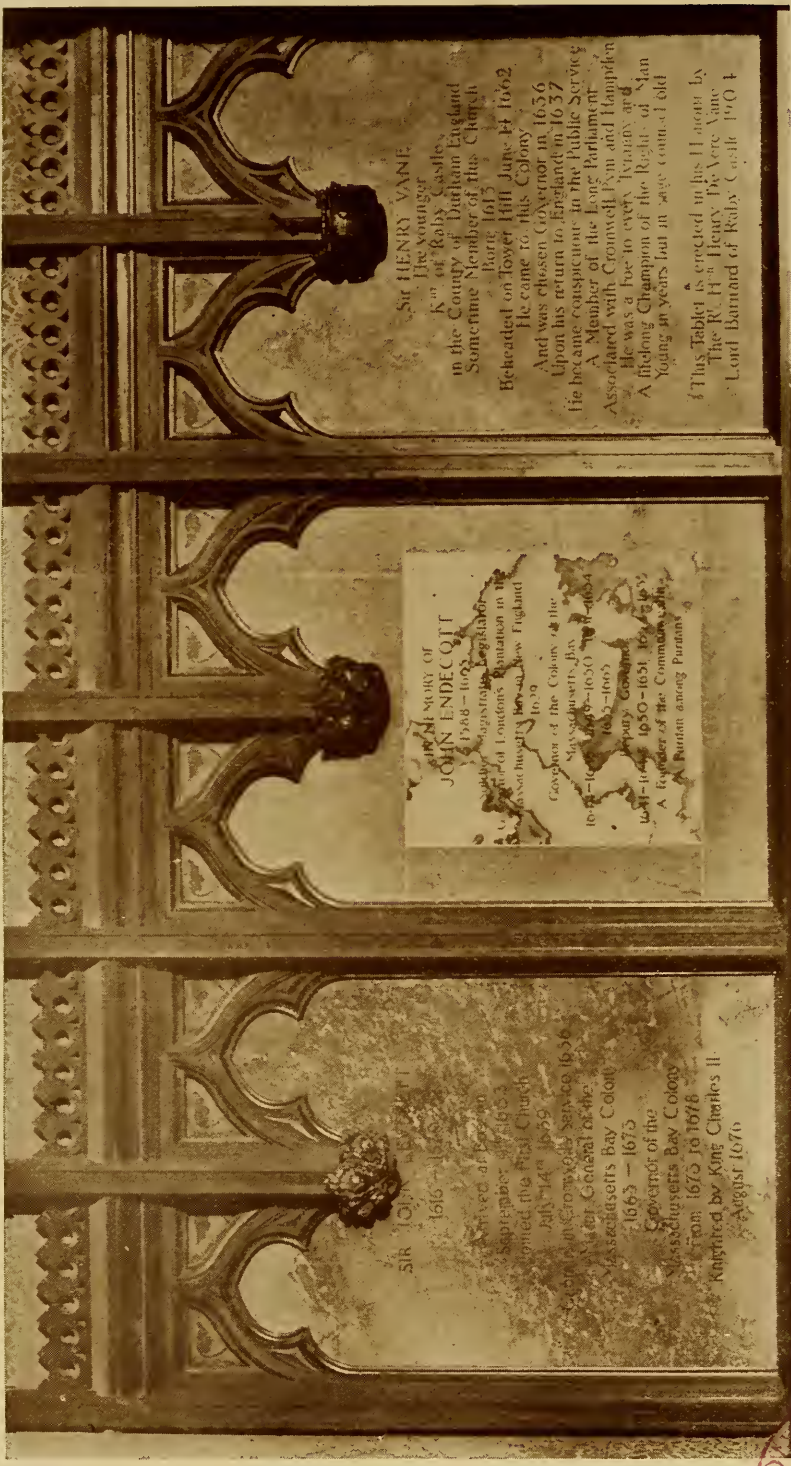 SIR JOHN
1616
September 4th 1633
Joined the First Church
July 14th 1639
Cromwell's Service 1636
Major General of the
Massachusetts Bay Colony
1663 – 1673
Governor of the
Massachusetts Bay Colony
From 1673 to 1678
Knighted by King Charles II
August 1676
IN MEMORY OF
JOHN ENDECOTT
1588–1665
Magistrate Legislator
of London's Plantation in the
Massachusetts Bay in New England
1629
Governor of the Colony of the
Massachusetts Bay
1649–1650
1655–1665
Deputy Governor
1650–1651
A Founder of the Commonwealth
A Puritan among Puritans
Sir HENRY VANE
The younger
Knt of Raby Castle
in the County of Durham England
Sometime Member of this Church
Born 1613
Beheaded on Tower Hill June 14 1662
He came to this Colony
And was chosen Governor in 1636
Upon his return to England in 1637
He became conspicuous in the Public Service
A Member of the Long Parliament
Associated with Cromwell Pym and Hampden
He was a Foe to every Tyranny and
A lifelong Champion of the Rights of Man
Young in years but in sage counsel old
This Tablet is erected in his Honour by
The Rt Hon Henry De Vere Vane
Lord Barnard of Raby Castle 1904